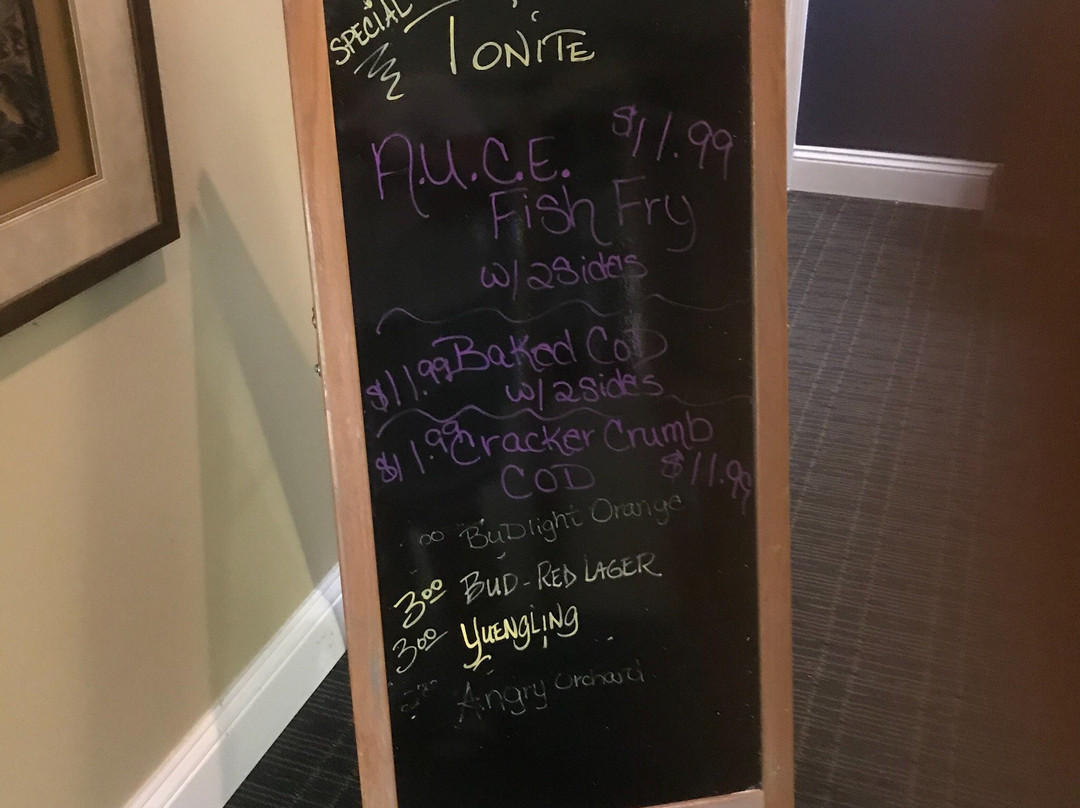 SPECIAL
TONITE
A.U.C.E. $11.99
Fish Fry
w/2Sides
$11.99 Baked COD
w/2Sides
$11.99 Cracker Crumb
COD $11.99
00 BuDlight Orange
3.00 BUD-RED LAGER
3.00 YUENGLING
Angry Orchard